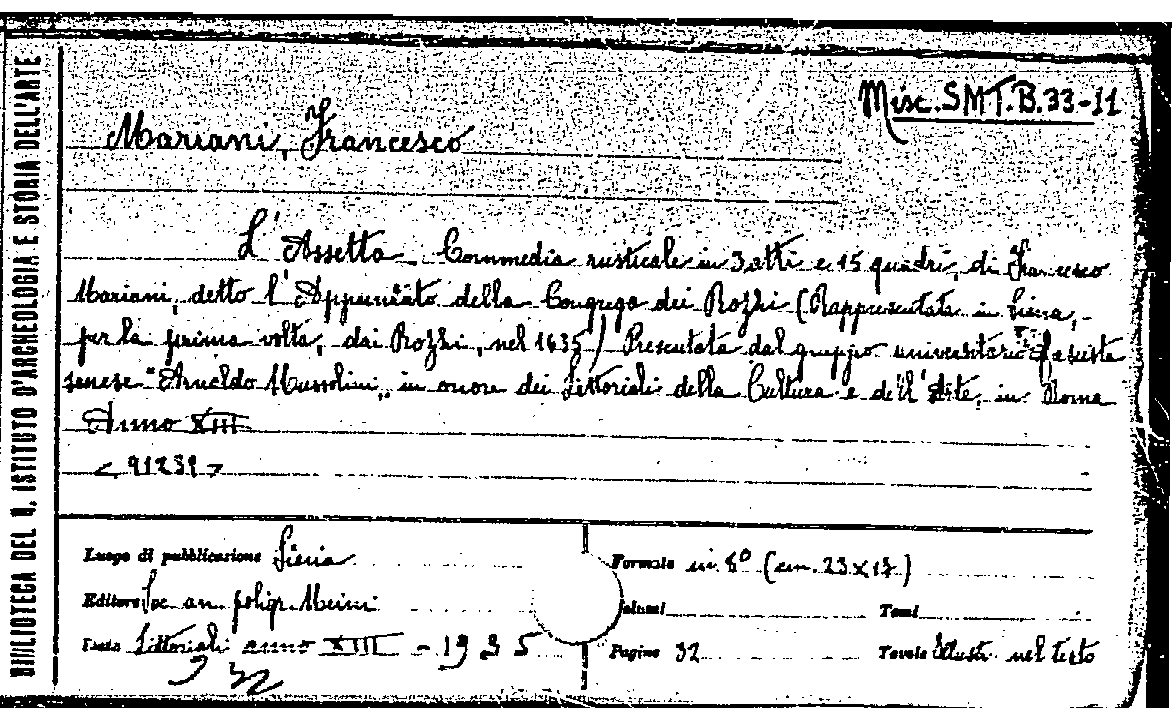 BIBLIOTECA DEL R. ISTITUTO D'ARCHEOLOGIA E STORIA DELL'ARTE
Misc. SMT.B.33-11
Mariani, Francesco
L'Assetta. Commedia rusticale in 3 atti e 15 quadri, di Francesco
Mariani, detto l'Appuntato della Congrega dei Rozzi (Rappresentata in Siena,
per la prima volta, dai Rozzi, nel 1635) Presentata dal gruppo universitario fascista
senese "Arnaldo Mussolini" in onore dei Littoriali della Cultura e dell'Arte, in Roma
Anno XIII
< 91239 >
Luogo di pubblicazione Siena
Editore Soc. an. poligr. Meini
Data Littoriali anno XIII - 1935
Formato in 8° (cm. 23x17)
Volumi Tomi
Pagine 32 Tavole Illustr. nel testo